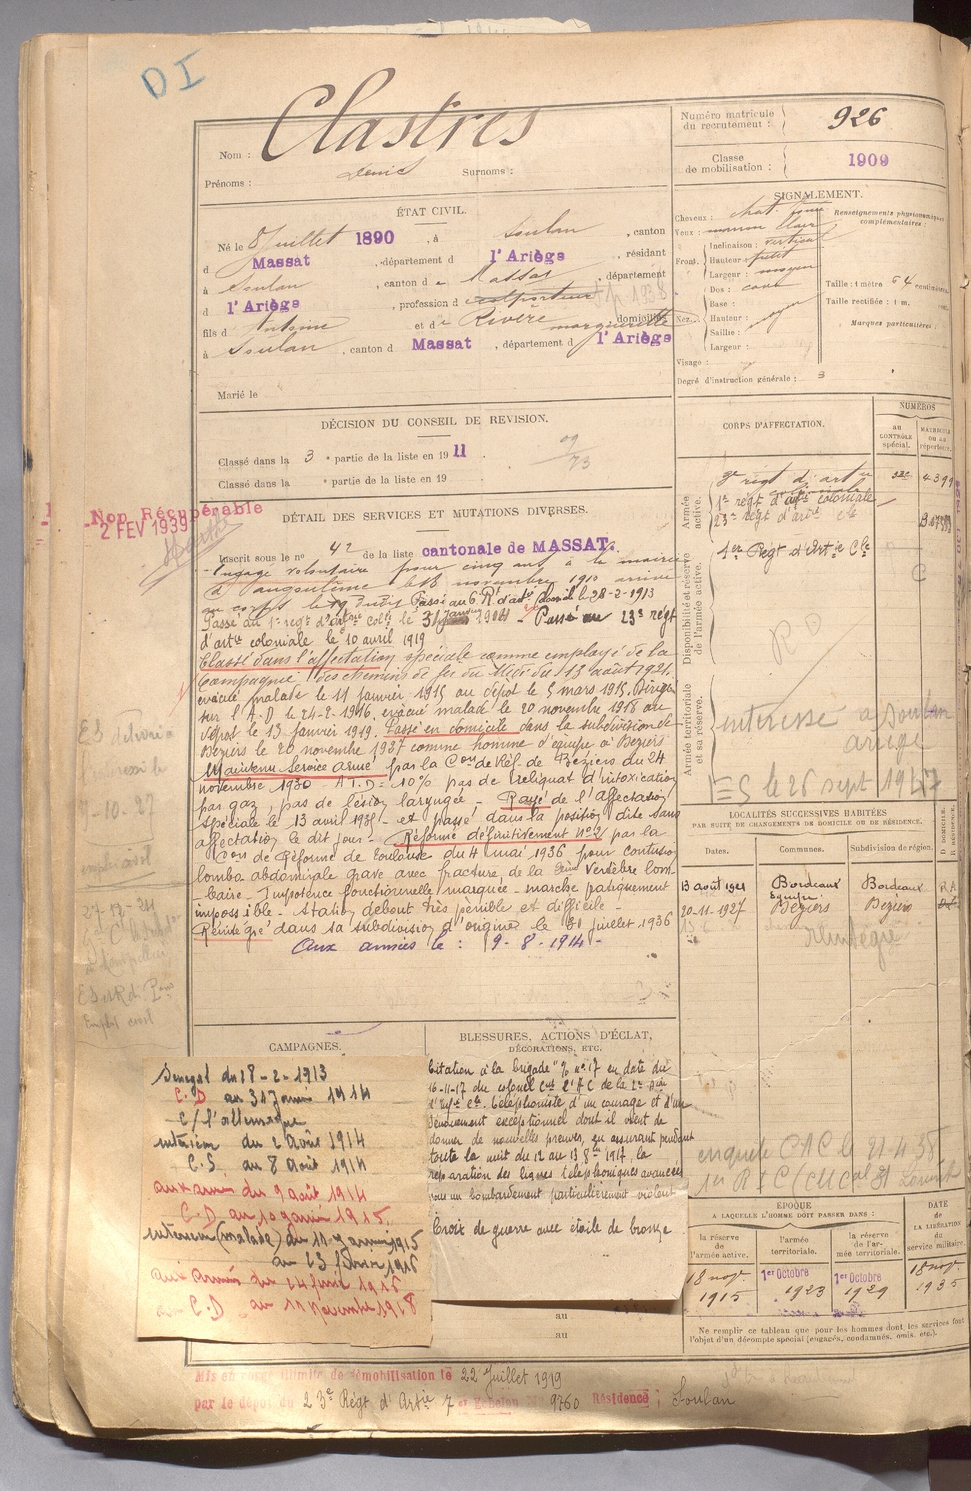 DI
Nom : Clastres
Prénoms : Denis Surnoms :
Numéro matricule du recrutement : 926
Classe de mobilisation : 1909
ÉTAT CIVIL.
Né le 8 Juillet 1890, à Soulan, canton
d Massat, département d l'Ariège, résidant
à Soulan, canton de Massat, département
d l'Ariège, profession de colporteur
fils d Antoine et de Rivère marguerite domiciliés
à Soulan, canton d Massat, département d l'Ariège
Marié le
SIGNALEMENT.
Cheveux : chat. foncé
Yeux : marron clair
Front. Inclinaison : vertical
Hauteur : petit
Largeur : moyen
Nez. Dos : cave
Base :
Hauteur :
Saillie :
Largeur :
Visage :
Degré d'instruction générale : 3
Renseignements physionomiques complémentaires :
Taille : 1 mètre 64 centimètres
Taille rectifiée : 1 m.
Marques particulières :
DÉCISION DU CONSEIL DE REVISION.
Classé dans la 3e partie de la liste en 1911.
Classé dans la e partie de la liste en 19
09
73
Non Récupérable
- 2 FEV 1939
DÉTAIL DES SERVICES ET MUTATIONS DIVERSES.
Inscrit sous le no 42 de la liste cantonale de MASSAT.
Engagé volontaire pour cinq ans à la mairie
d'angoulême le 18 novembre 1910 arrivé
au corps le 19 dudit Passé au 6e Rt d'arti le 28-2-1913
Passé au 1er regt d'artie colle le 31 Janvier 1914 - Passé au 23e régt
d'artie coloniale le 10 avril 1919
Classé dans l'affectation spéciale comme employé de la
Compagnie des chemins de fer du Midi du 13 août 1921.
évacué malade le 11 janvier 1915 au dépôt le 5 mars 1915. Dirigé
sur l'A.D le 24-2-1916. évacué malade le 20 novembre 1918 au
dépôt le 13 janvier 1919. Passé en domicile dans la subdivision de
Béziers le 20 novembre 1927 comme homme d'équipe à Béziers
Maintenu Service Armé par la Con de Réf. de Béziers du 24
novembre 1930 - A.T.D = 10% pas de reliquat d'intoxication
par gaz, pas de lésion laryngée - Rayé de l'Affectation
spéciale le 13 avril 193 - et passé dans la position dite sans
affectation le dit jour - Réformé définitivement no 2 par la
Con de Réforme de Toulouse du 4 mai 1936 pour contusion
lombo abdominale grave avec fracture de la vertèbre lom-
baire - Impotence fonctionnelle marquée - marche pratiquement
impossible - station debout très pénible et difficile -
Réintégré dans sa subdivision d'origine le 31 juillet 1936
Aux armées le : 9-8-1914 -
CORPS D'AFFECTATION.
NUMÉROS
AU CONTRÔLE SPÉCIAL.
MATRICULE OU AU RÉPERTOIRE.
Armée active.
1er régt d'artie coloniale
23e régt d'artie cle
Disponibilité et réserve de l'armée active.
1er Régt d'Artie Cle
Armée territoriale et sa réserve.
interessé à Soulan
ariège
le 26 sept 1947
LOCALITÉS SUCCESSIVES HABITÉES
PAR SUITE DE CHANGEMENTS DE DOMICILE OU DE RÉSIDENCE.
Dates. Communes. Subdivision de région. D. DOMICILE. R. RÉSIDENCE.
13 août 1921 Bordeaux Bordeaux R.A.
20-11-1927 Béziers Béziers
Réintégré
CAMPAGNES.
Sénégal du 18-2-1913
C.D au 31 Janvier 1914
C/ l'allemagne
intérieur du 2 Août 1914
C.S. au 8 août 1914
aux armées du 9 août 1914
C.D au 10 janvier 1915.
intérieur (malade) du 11 janvier 1915
au 23 février 1916
aux armées du 24 février 1916
C.D au 11 novembre 1918
BLESSURES, ACTIONS D'ÉCLAT, DÉCORATIONS, ETC.
Citation à la brigade o/o no 17 en date du
16-11-17 du colonel Cdt l'A C de la 2e Don
d'Infie Cle. Téléphoniste d'un courage et d'un
dévouement exceptionnel dont il vient de
donner de nouvelles preuves, en assurant pendant
toute la nuit du 12 au 13 8bre 1917, la
réparation des lignes téléphoniques avancées
sous un bombardement particulièrement violent
Croix de guerre avec étoile de bronze
au
au
enquête C A C le 21.4.38
ÉPOQUE
A LAQUELLE L'HOMME DOIT PASSER DANS :
la réserve de l'armée active. l'armée territoriale. la réserve de l'armée territoriale. DATE DE LA LIBÉRATION du service militaire.
18 nov. 1915 1er Octobre 1923 1er Octobre 1929 18 nov 1935
Ne remplir ce tableau que pour les hommes dont les services font l'objet d'un décompte spécial [engagés, condamnés, omis, etc.].
Mis en congé illimité de démobilisation le 22 Juillet 1919
par le dépôt du 23e Régt d'Artie 7e Echelon No 9760 Résidence : Soulan